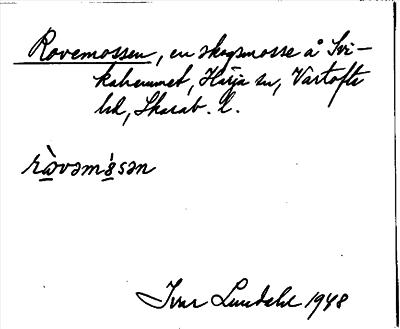 Rovemossen, en skogsmosse å Svi-
kahemmet, Härja sn, Vartofta
hd, Skarab. l.
ràvəmo̍sən
Ivar Lundahl 1948